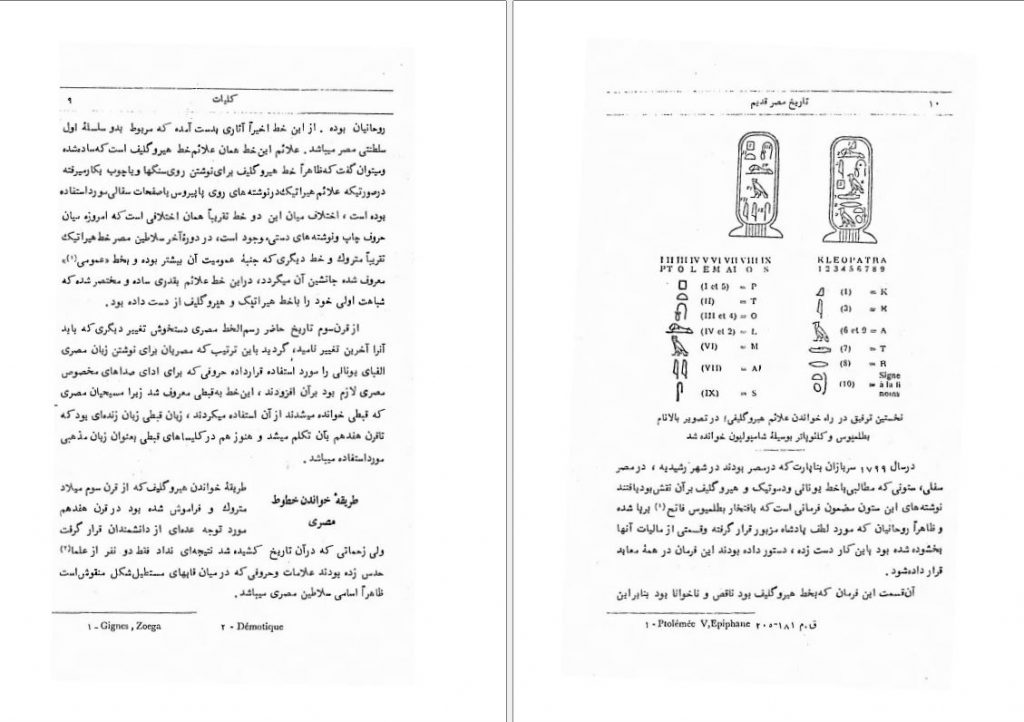 ۹
کلیات
روحانیان بوده . از این خط اخیراً آثاری بدست آمده که مربوط بدو سلسلهٔ اول
سلطنتی مصر میباشد . علائم این خط همان علائم خط هیروگلیف است که ساده شده
ومیتوان گفت که ظاهراً خط هیروگلیف برای نوشتن روی سنگها و یا چوب بکار میرفته
درصورتیکه علائم هیراتیك در نوشته های روی پاپیروس یا صفحات سفالی مورد استفاده
بوده است ، اختلاف میان این دو خط تقریباً همان اختلافی است که امروزه میان
حروف چاپ و نوشته های دستی، وجود است، در دورهٔ آخر سلاطین مصر خط هیراتیك
تقریباً متروك و خط دیگری که جنبهٔ عمومیت آن بیشتر بوده و بخط «عمومی(۱)»
معروف شده جانشین آن میگردد، دراین خط علائم بقدری ساده و مختصر شده که
شباهت اولی خود را باخط هیراتیك و هیروگلیف از دست داده بود.
از قرن سوم تاریخ حاضر رسم الخط مصری دستخوش تغییر دیگری که باید
آنرا آخرین تغییر نامید، گردید باین ترتیب که مصریان برای نوشتن زبان مصری
الفبای یونانی را مورد استفاده قرارداده حروفی که برای ادای صداهای مخصوص
مصری لازم بود برآن افزودند ، این خط به قبطی معروف شد زیرا مسیحیان مصری
که قبطی خوانده میشدند از آن استفاده میکردند ، زبان قبطی زبان زنده‌ای بود که
تاقرن هفدهم بآن تکلم میشد و هنوز هم در کلیساهای قبطی بعنوان زبان مذهبی
مورد استفاده میباشد .
طریقهٔ خواندن خطوط
مصری
طریقهٔ خواندن هیروگلیف که از قرن سوم میلاد
متروك و فراموش شده بود در قرن هفدهم
مورد توجه عده‌ای از دانشمندان قرار گرفت
ولی زحماتی که درآن تاریخ کشیده شد نتیجه‌ای نداد فقط دو نفر از علما(۲)
حدس زده بودند علامات وحروفی که در میان قابهای مستطیل شکل منقوش است
ظاهراً اسامی سلاطین مصری میباشد .
۱ - Gignes , Zoega ۲ - Démotique
۱۰
تاریخ مصر قدیم
I II III IV V VI VII VIII IX
PT O L E M AI O S
(I et 5) = P
(II) = T
(III et 4) = O
(IV et 2) = L
(VI) = M
(VII) = AI
(IX) = S
KLEOPATRA
1 2 3 4 5 6 7 8 9
(1) = K
(3) =
(6 et 9 = A
(7) = T
(8) = R
(10) = Signe
à la fi
noms
نخستین توفیق در راه خواندن علائم هیروگلیفی؛ در تصویر بالا نام
بطلمیوس و کلئوپاتر بوسیلهٔ شامپولیون خوانده شد
درسال ۱۷۹۹ سربازان بناپارت که درمصر بودند در شهر رشیدیه ، در مصر
سفلی، ستونی که مطالبی باخط یونانی ودموتیک و هیروگلیف برآن نقش بود یافتند
نوشته‌های این ستون مضمون فرمانی است که بافتخار بطلمیوس فاتح(۱) برپا شده
و ظاهراً روحانیان که مورد لطف پادشاه مزبور قرار گرفته وقسمتی از مالیات آنها
بخشوده شده بود باین کار دست زده ، دستور داده بودند این فرمان در همهٔ معابد
قرار داده شود .
آن قسمت این فرمان که بخط هیروگلیف بود ناقص و ناخوانا بود بنابراین
۱ - Ptolémée V,Epiphane ۲۰۵-۱۸۱ ق.م